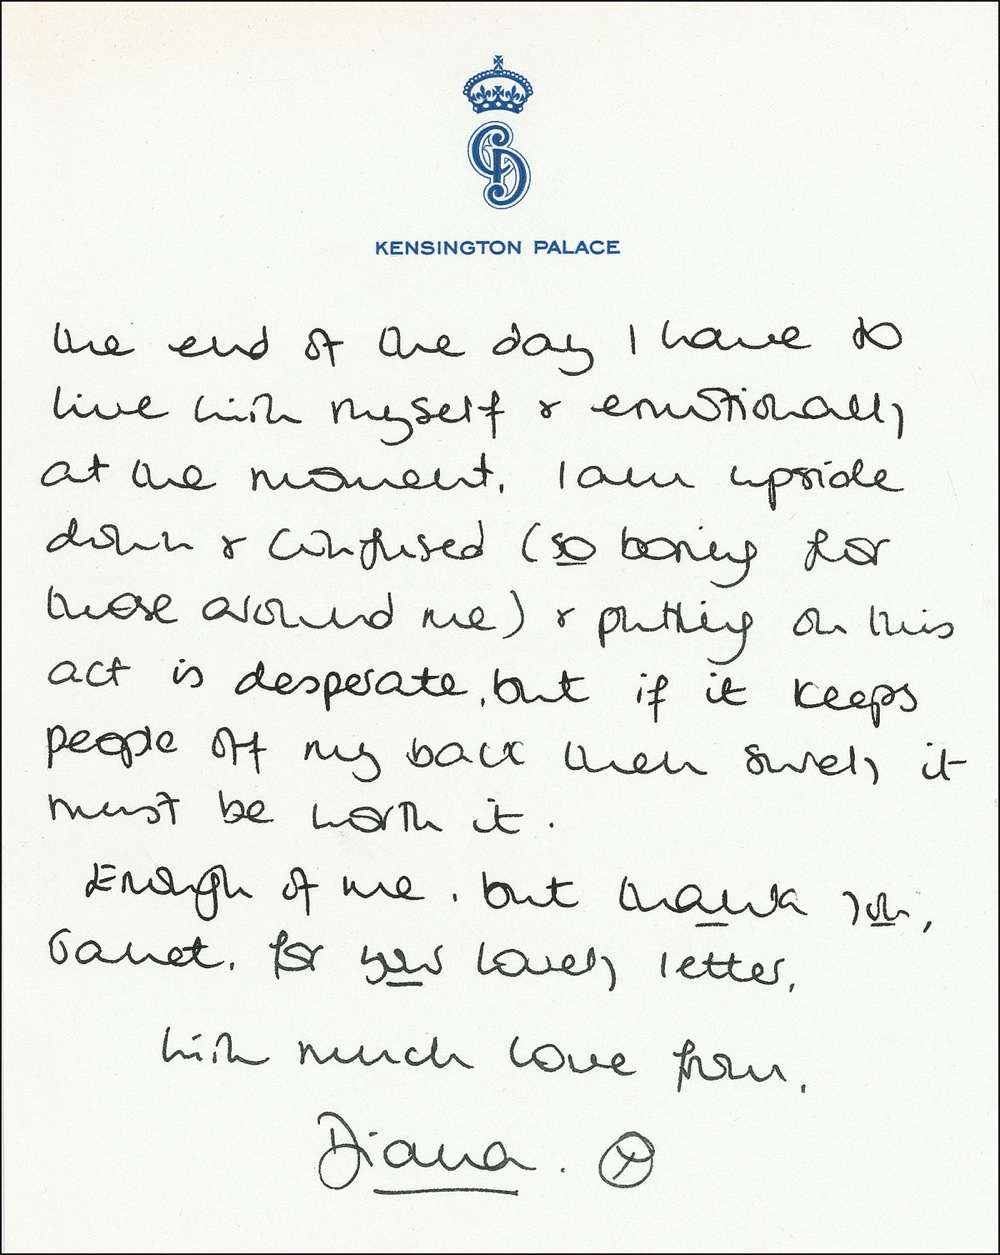 CD
KENSINGTON PALACE
the end of the day I have to
live with myself & emotionally
at the moment, I am upside
down & confused (so boring for
those around me) & putting on this
act is desperate, but if it keeps
people off my back then surely it
must be worth it.
Enough of me. but thank you,
Janet. for your lovely letter,
With much love from,
Diana. X